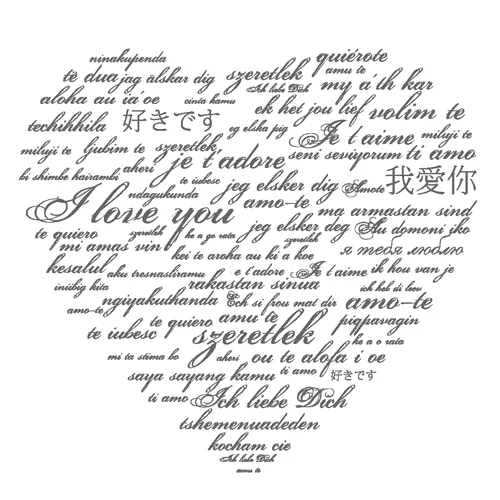 ninakupenda quiérote
të dua jag älskar dig szeretlek amu te
Ich liebe Dich my a'th kar
aloha au ia'oe cinta kamu ek het jou lief volim te
techihhila 好きです eg elska pig Je t'aime miluji te
miluji te ljubim te szeretlek seni seviyorum ti amo
bi shimbe hairambi aheri je t'adore
te iubesc jeg elsker dig Amote 我愛你
ndagukunda amo-te
I love you ma armastan sind
te quiero szeretlek ke a go rata jeg elsker deg Au domoni iko
mi amas vin szeretlek я тебя люблю
kei te aroha au ki a koe
kesalul aku tresnasliramu e t'adore Je t'aime ik hou van je
iniibig kita rakastan sinua ich heb di liev
ngiyakuthanda Ech si frou mat dir amo-te
amo-te
te quiero amu te piqpavagin
te iubesc szeretlek ke a o rata
mi ta stima bo aheri ou te alofa i oe
saya sayang kamu ti amo 好きです
ti amo Ich liebe Dich
tshemenuadeden
kocham cie
Ich liebe Dich
amu te